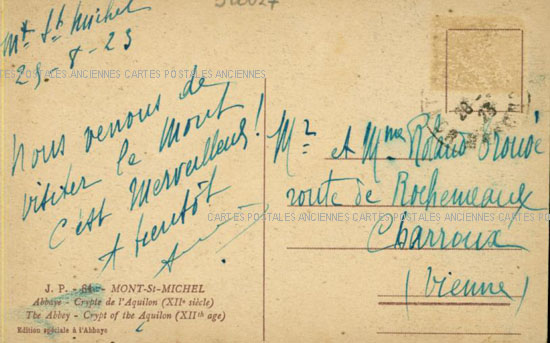 Mt St Michel
29-8-23
Nous venons de
visiter le Mont
c'est Merveilleux!
A bientôt
Mr et Mme Roland
route de Rochemeaux
Charroux
(Vienne)
J. P. - 64 - MONT-St-MICHEL
Abbaye - Crypte de l'Aquilon (XIIe siècle)
The Abbey - Crypt of the Aquilon (XIIth age)
Edition spéciale à l'Abbaye
CARTES POSTALES ANCIENNES CARTES POSTALES ANCIENNES CARTES POSTALES ANCIENNES
CARTES POSTALES ANCIENNES CARTES POSTALES ANCIENNES